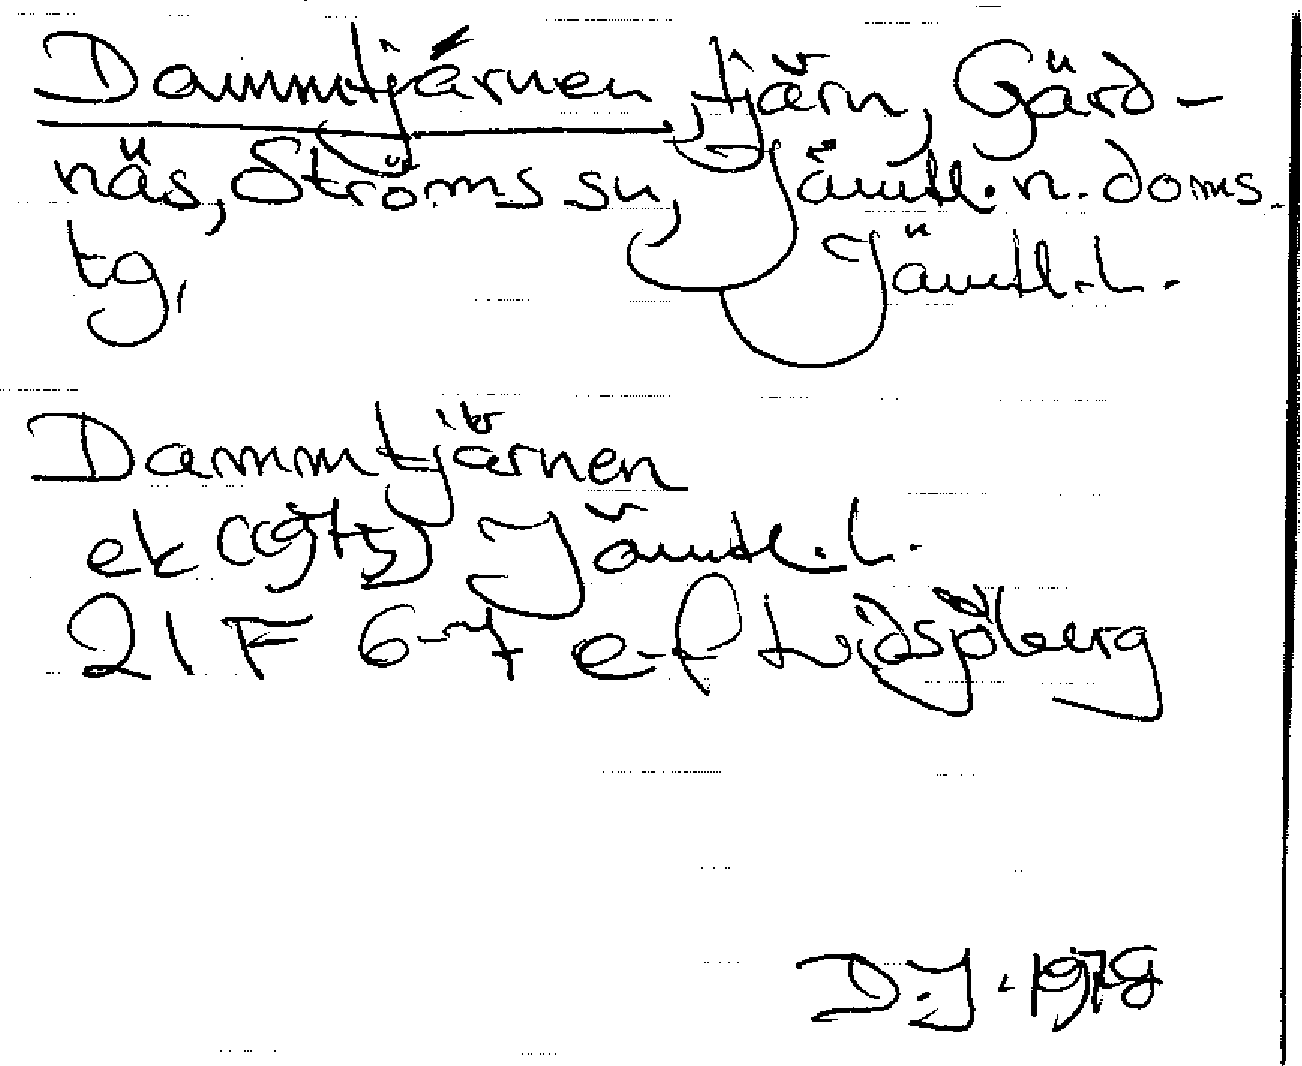 Dammtjärnen, tjärn, Gärd-
näs, Ströms sn, Jämtl. n. doms.
tg, Jämtl. L.
Dammtjärnen
ek Jämtl. L.
21 F 6-7 e-f
D.J. 1978